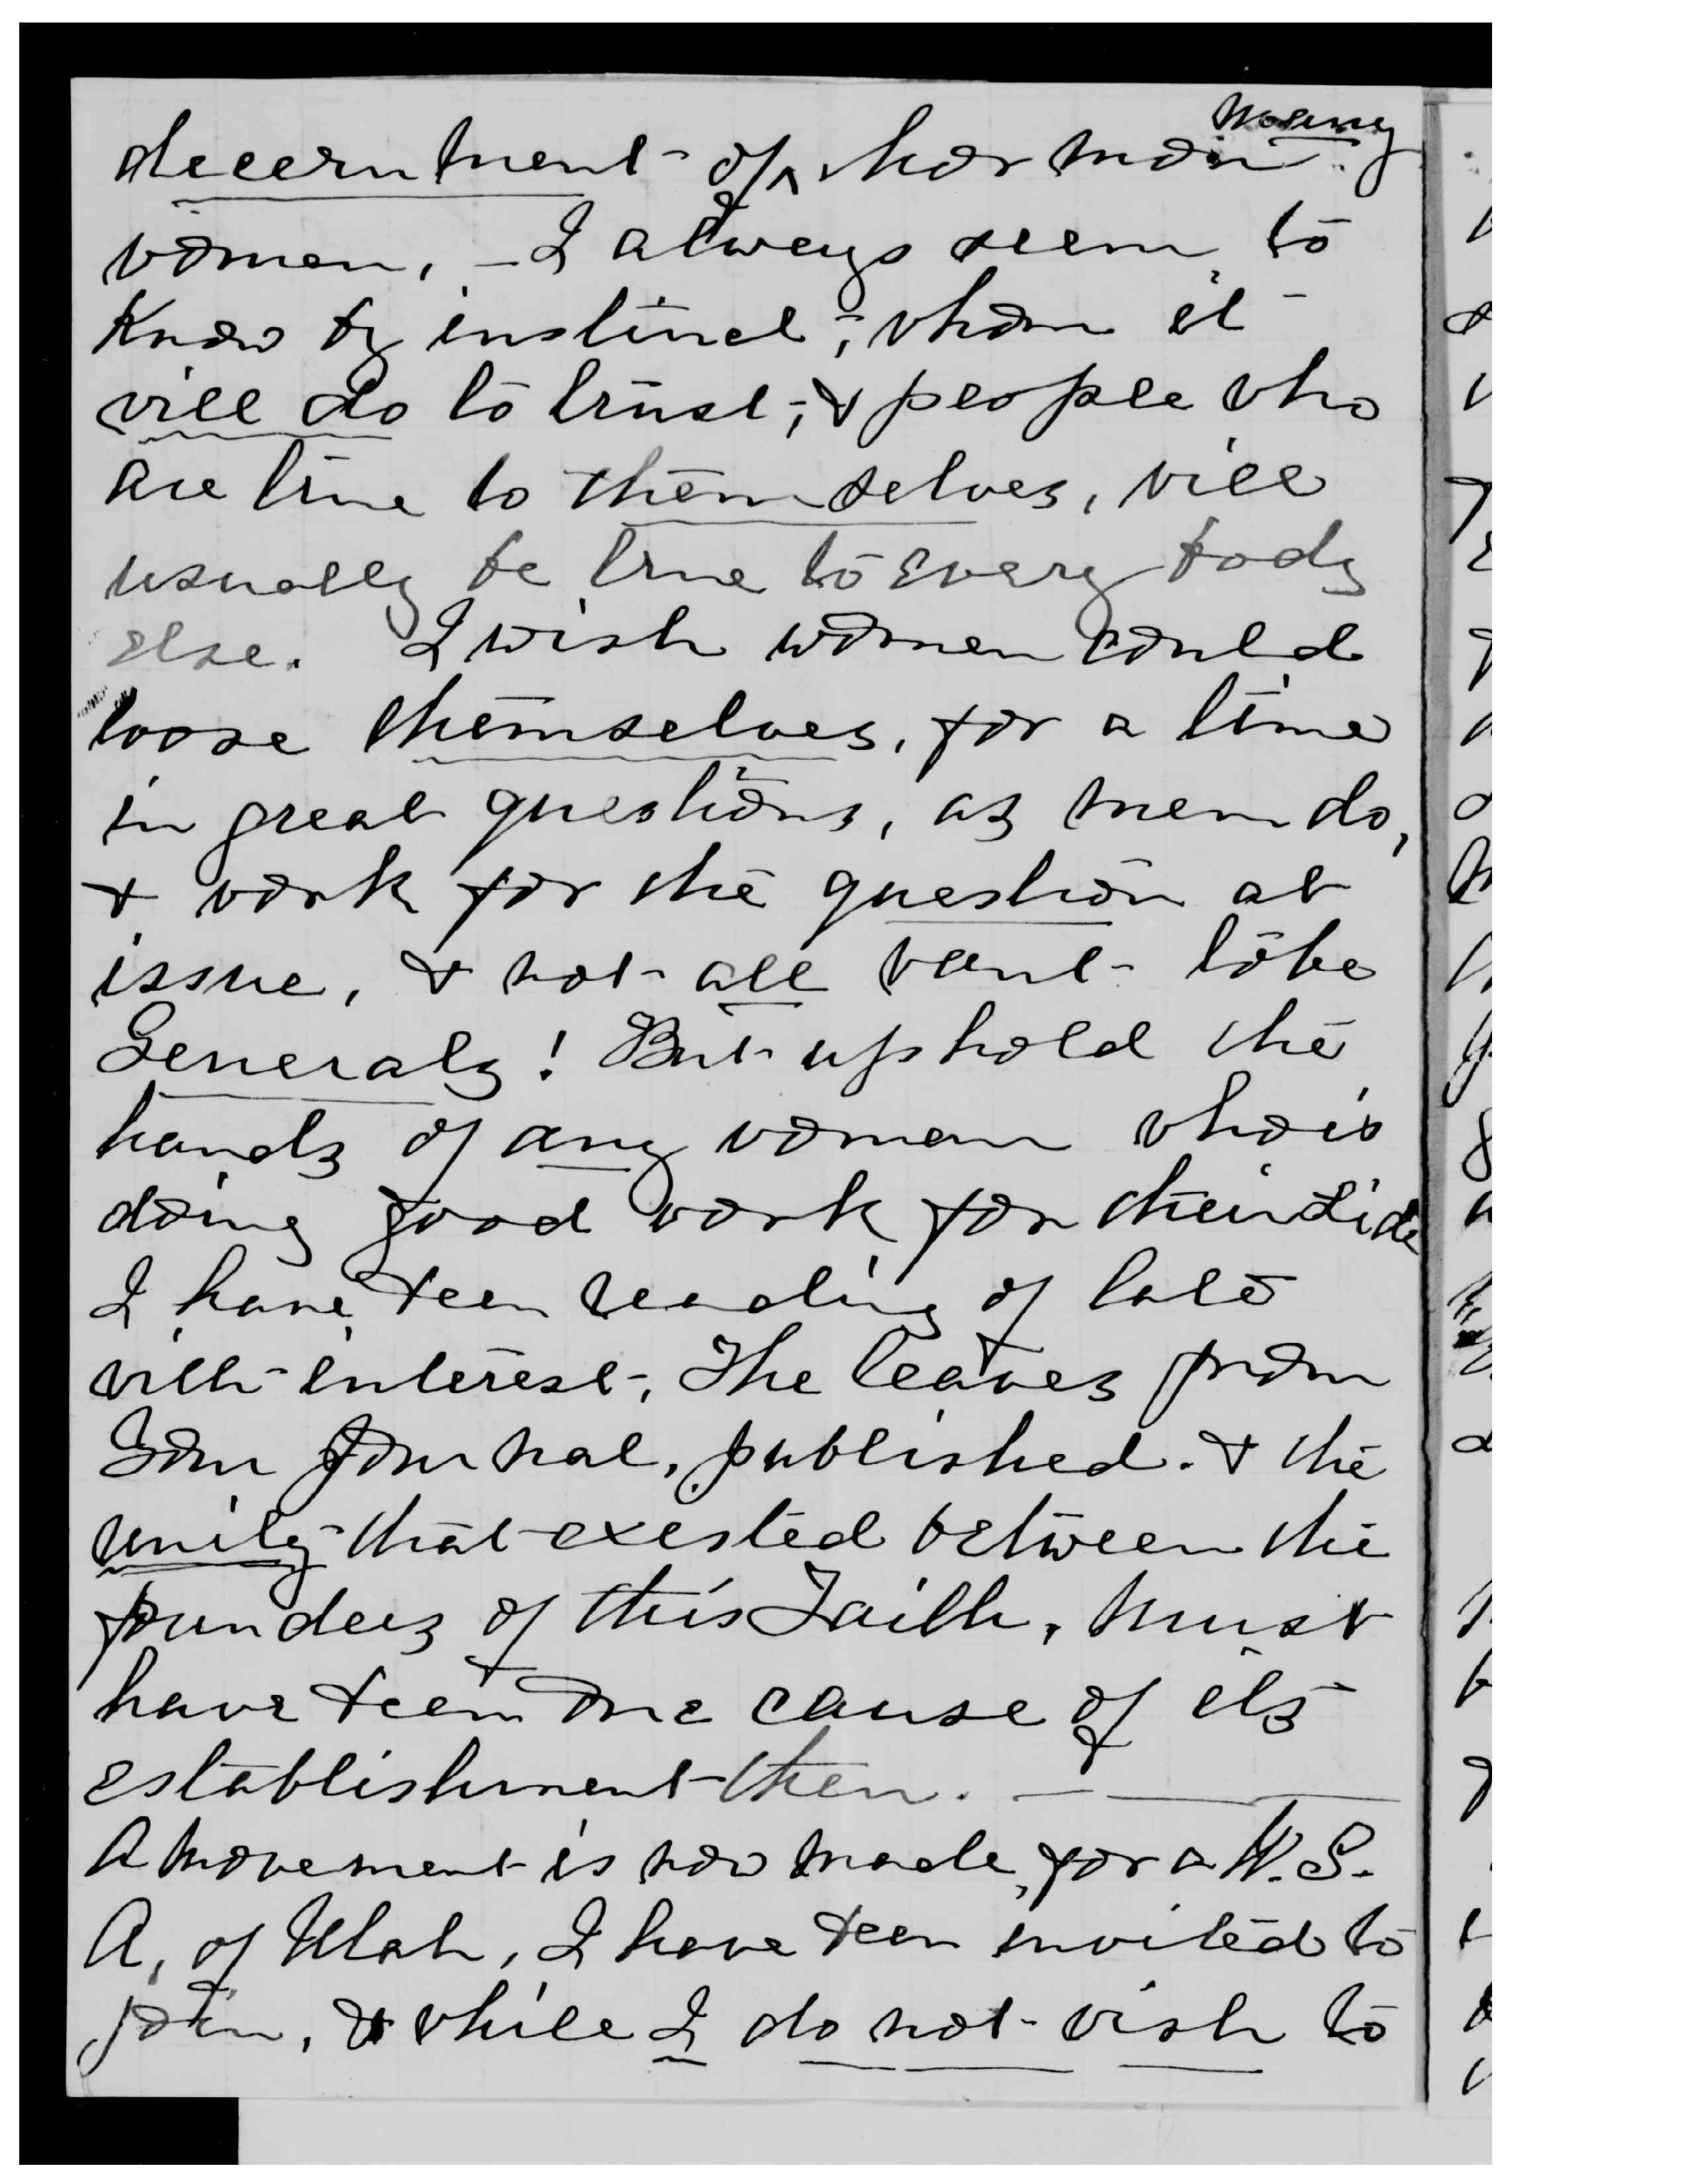 many
decernment of ^ Mormon
women, - I always seem to
Know by instinct, whom it
will do to trust, & people who
are true to themselves, will
usually be true to Every body
else. I wish women could
loose themselves, for a time
in great questions, as men do,
& work for the question at
issue, & not all want to be
Generals! But uphold the
hands of any woman who is
doing good work for their side
I have been reading of late
with interest, The leaves from
Your Journal, published. & the
unity that existed between the
founders of this Faith, must
have been one cause of its
establishment then. —
A movement is now made, for a W. S.
A, of Utah, I have been invited to
join, & while I do not wish to